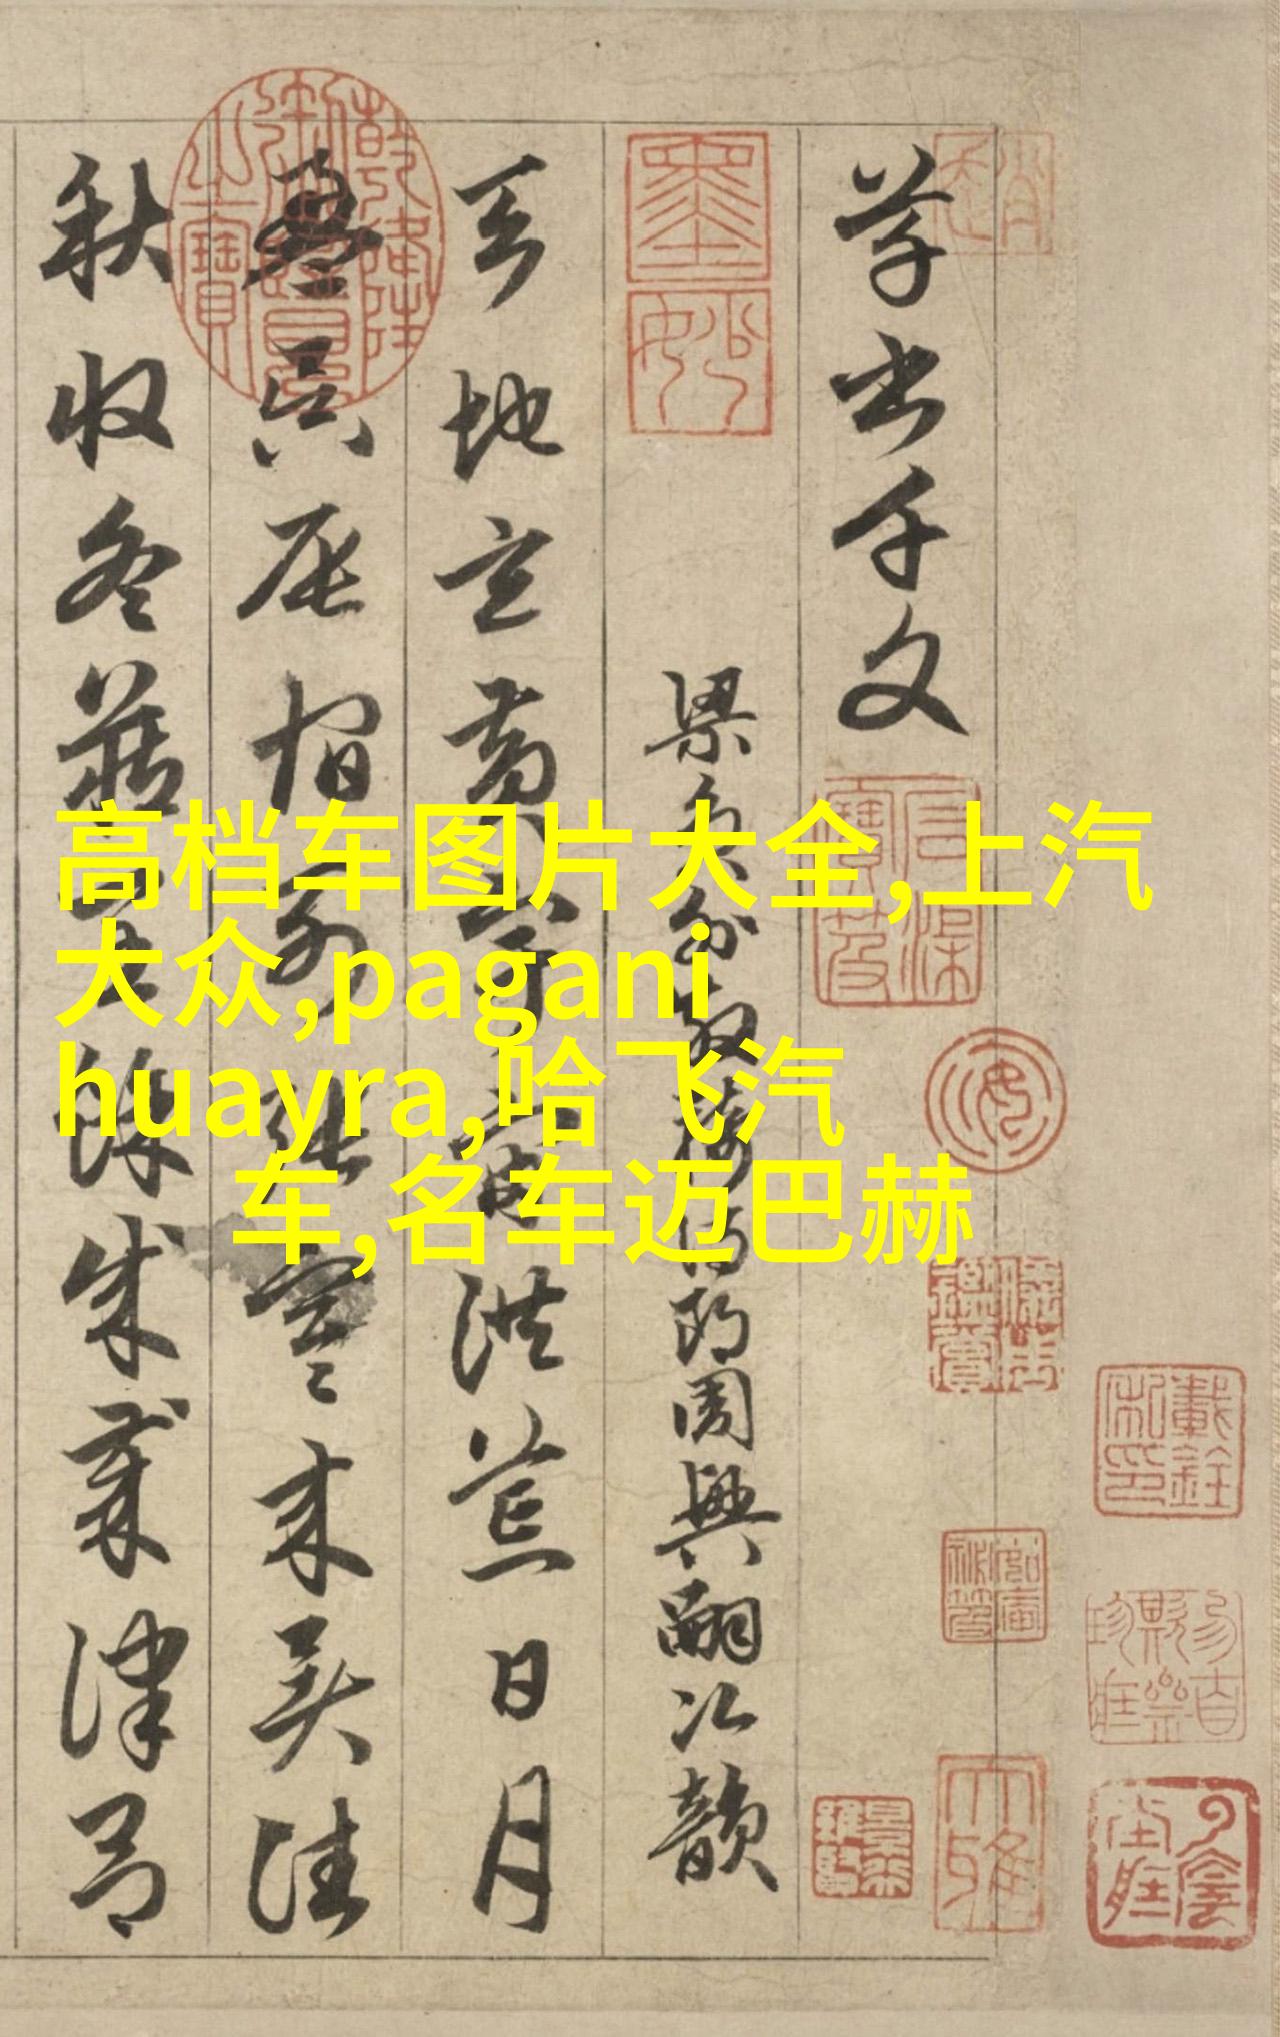 草書千文
墨妙
梁員外散騎侍郎周興嗣次韻
天地玄黄宇宙洪荒日月
盈昃辰宿列張寒來暑往
秋收冬藏閏餘成歲律吕
大雅
高档车图片大全,上汽
大众,pagani
huayra,哈飞汽
车,名车迈巴赫